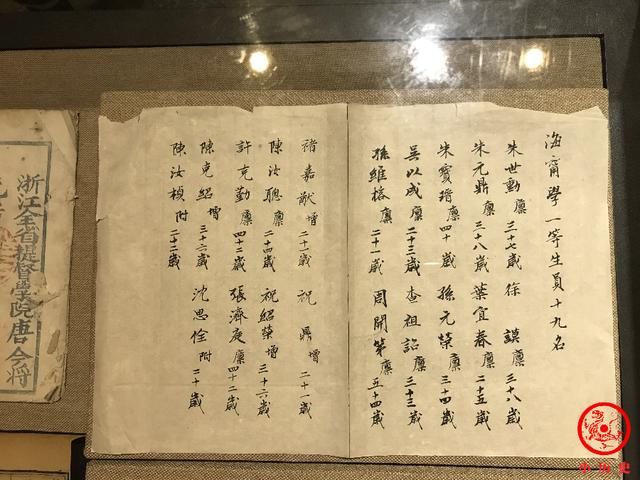 海甯學一等生員十九名
朱世勳廩三十七歲 徐謨廩三十八歲
朱元鼎廩三十八歲 葉宜春廩二十五歲
朱寶瑨廩四十歲 孫元榮廩三十四歲
吳以成廩二十三歲 查祖詒廩三十三歲
孫維榕廩二十一歲 周開第廩五十四歲
褚嘉猷增二十一歲 祝鼎增二十一歲
陳汝聰廩二十四歲 祝紹棻增三十六歲
許克勤廩四十二歲 張濟庭廩四十二歲
陳克紹增三十六歲 沈思佺附二十歲
陳汝楨附二十二歲
浙江全省提督學院唐今將